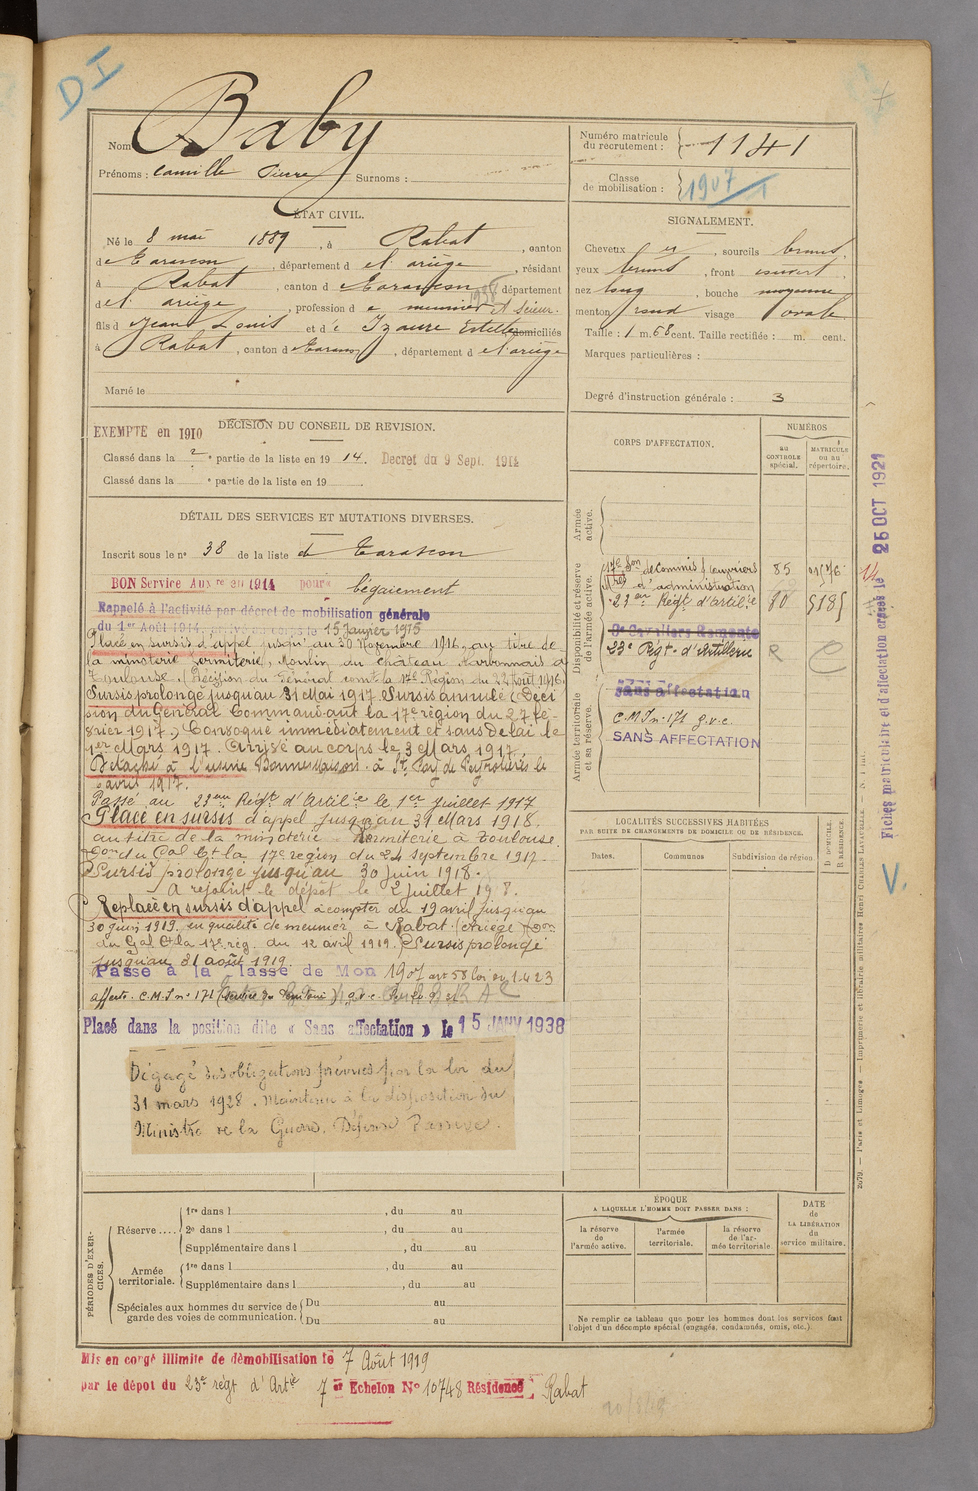 DI
Nom Baby
Prénoms : Camille Pierre Surnoms :
Numéro matricule du recrutement : 1141
Classe de mobilisation : 1907
ÉTAT CIVIL.
Né le 8 mai 1889, à Rabat, canton
de Tarascon, département de l'ariège, résidant
à Rabat, canton de Tarascon, département
de l'ariège, profession de meunier et Scieur.
fils de Jean Louis et de Izaure Estelle domiciliés
à Rabat, canton de Tarascon, département de l'ariège
Marié le
SIGNALEMENT.
Cheveux, sourcils bruns,
yeux bruns, front ouvert,
nez long, bouche moyenne
menton rond visage ovale
Taille : 1 m. 68 cent. Taille rectifiée : m. cent.
Marques particulières :
Degré d'instruction générale : 3
EXEMPTE en 1910
DÉCISION DU CONSEIL DE REVISION.
Classé dans la 2e partie de la liste en 1914. Decret du 9 Sept. 1914
Classé dans la e partie de la liste en 19
DÉTAIL DES SERVICES ET MUTATIONS DIVERSES.
Inscrit sous le no 38 de la liste de Tarascon
BON Service Auxre en 1914 pour bégaiement
Rappelé à l'activité par décret de mobilisation générale
du 1er Août 1914, arrivé au corps le 15 Janvier 1915
Placé en sursis d'appel jusqu'au 30 Novembre 1916, au titre de
la minoterie Vermiterie, Moulin du château Narbonnais à
Toulouse. Décision du Général comt la 17e Région du 22 Août 1916.
Sursis prolongé jusqu'au 31 Mai 1917. Sursis annulé (Déci
sion du Général Commandant la 17e région du 27 fé-
vrier 1917.) Convoqué immédiatement et sans délai le
1er Mars 1917. Arrivé au corps le 3 Mars 1917.
Détaché à l'usine Bonnemaison à St Pey de Peyrolières le
avril 1917.
Passé au 23eme Régt d'Artilie le 1er Juillet 1917
Placé en sursis d'appel jusqu'au 31 Mars 1918.
au titre de la minoterie Vermiterie à Toulouse
Don du Gal Ct la 17e région du 24 septembre 1917.
Sursis prolongé jusqu'au 30 Juin 1918.
A rejoint le dépôt le 2 juillet 1918.
Replacé en sursis d'appel à compter du 19 avril jusqu'au
30 juin 1919. en qualité de meunier à Rabat (Ariège) Don
du Gal Ct la 17e rég. du 12 avril 1919. Sursis prolongé
jusqu'au 31 août 1919.
Passé à la Classe de Mon 1907 art 58 loi du 1.4.23
affecté C.M.I no 171 g.v.c.
Placé dans la position dite « Sans affectation » le 15 JANV 1938
Dégagé des obligations prévues par la loi du
31 mars 1928. Maintenu à la disposition du
Ministre de la Guerre. Défense Passive.
CORPS D'AFFECTATION.
NUMÉROS
au CONTROLE spécial.
MATRICULE ou au répertoire.
Armée active.
Disponibilité et réserve de l'armée active.
17e Son de Commis & ouvriers 85
mres d'administration
23eme Régt d'Artilie 80 5185
23e Régt d'Artillerie
Armée territoriale et sa réserve.
Sans affectation
C.M.I no 171 g.v.c.
SANS AFFECTATION
LOCALITÉS SUCCESSIVES HABITÉES
PAR SUITE DE CHANGEMENTS DE DOMICILE OU DE RÉSIDENCE.
Dates. Communes Subdivision de région D. DOMICILE. R. RÉSIDENCE.
Fiches matriculaire et d'affectation créées le 25 OCT 1921
V.
2679. — Paris et Limoges. — Imprimerie et librairie militaires Henri CHARLES-LAVAUZELLE.
PÉRIODES D'EXERCICES.
Réserve.... 1re dans l , du au
2e dans l , du au
Supplémentaire dans l , du au
Armée territoriale. 1re dans l , du au
Supplémentaire dans l , du au
Spéciales aux hommes du service de garde des voies de communication. Du au
Du au
ÉPOQUE
A LAQUELLE L'HOMME DOIT PASSER DANS :
la réserve de l'armée active.
l'armée territoriale.
la réserve de l'armée territoriale.
DATE de LA LIBÉRATION du service militaire.
Ne remplir ce tableau que pour les hommes dont les services font
l'objet d'un décompte spécial (engagés, condamnés, omis, etc.).
Mis en congé illimité de démobilisation le 7 Août 1919
par le dépot du 23e régt d'Artie 7e Echelon No 10748 Résidence Rabat